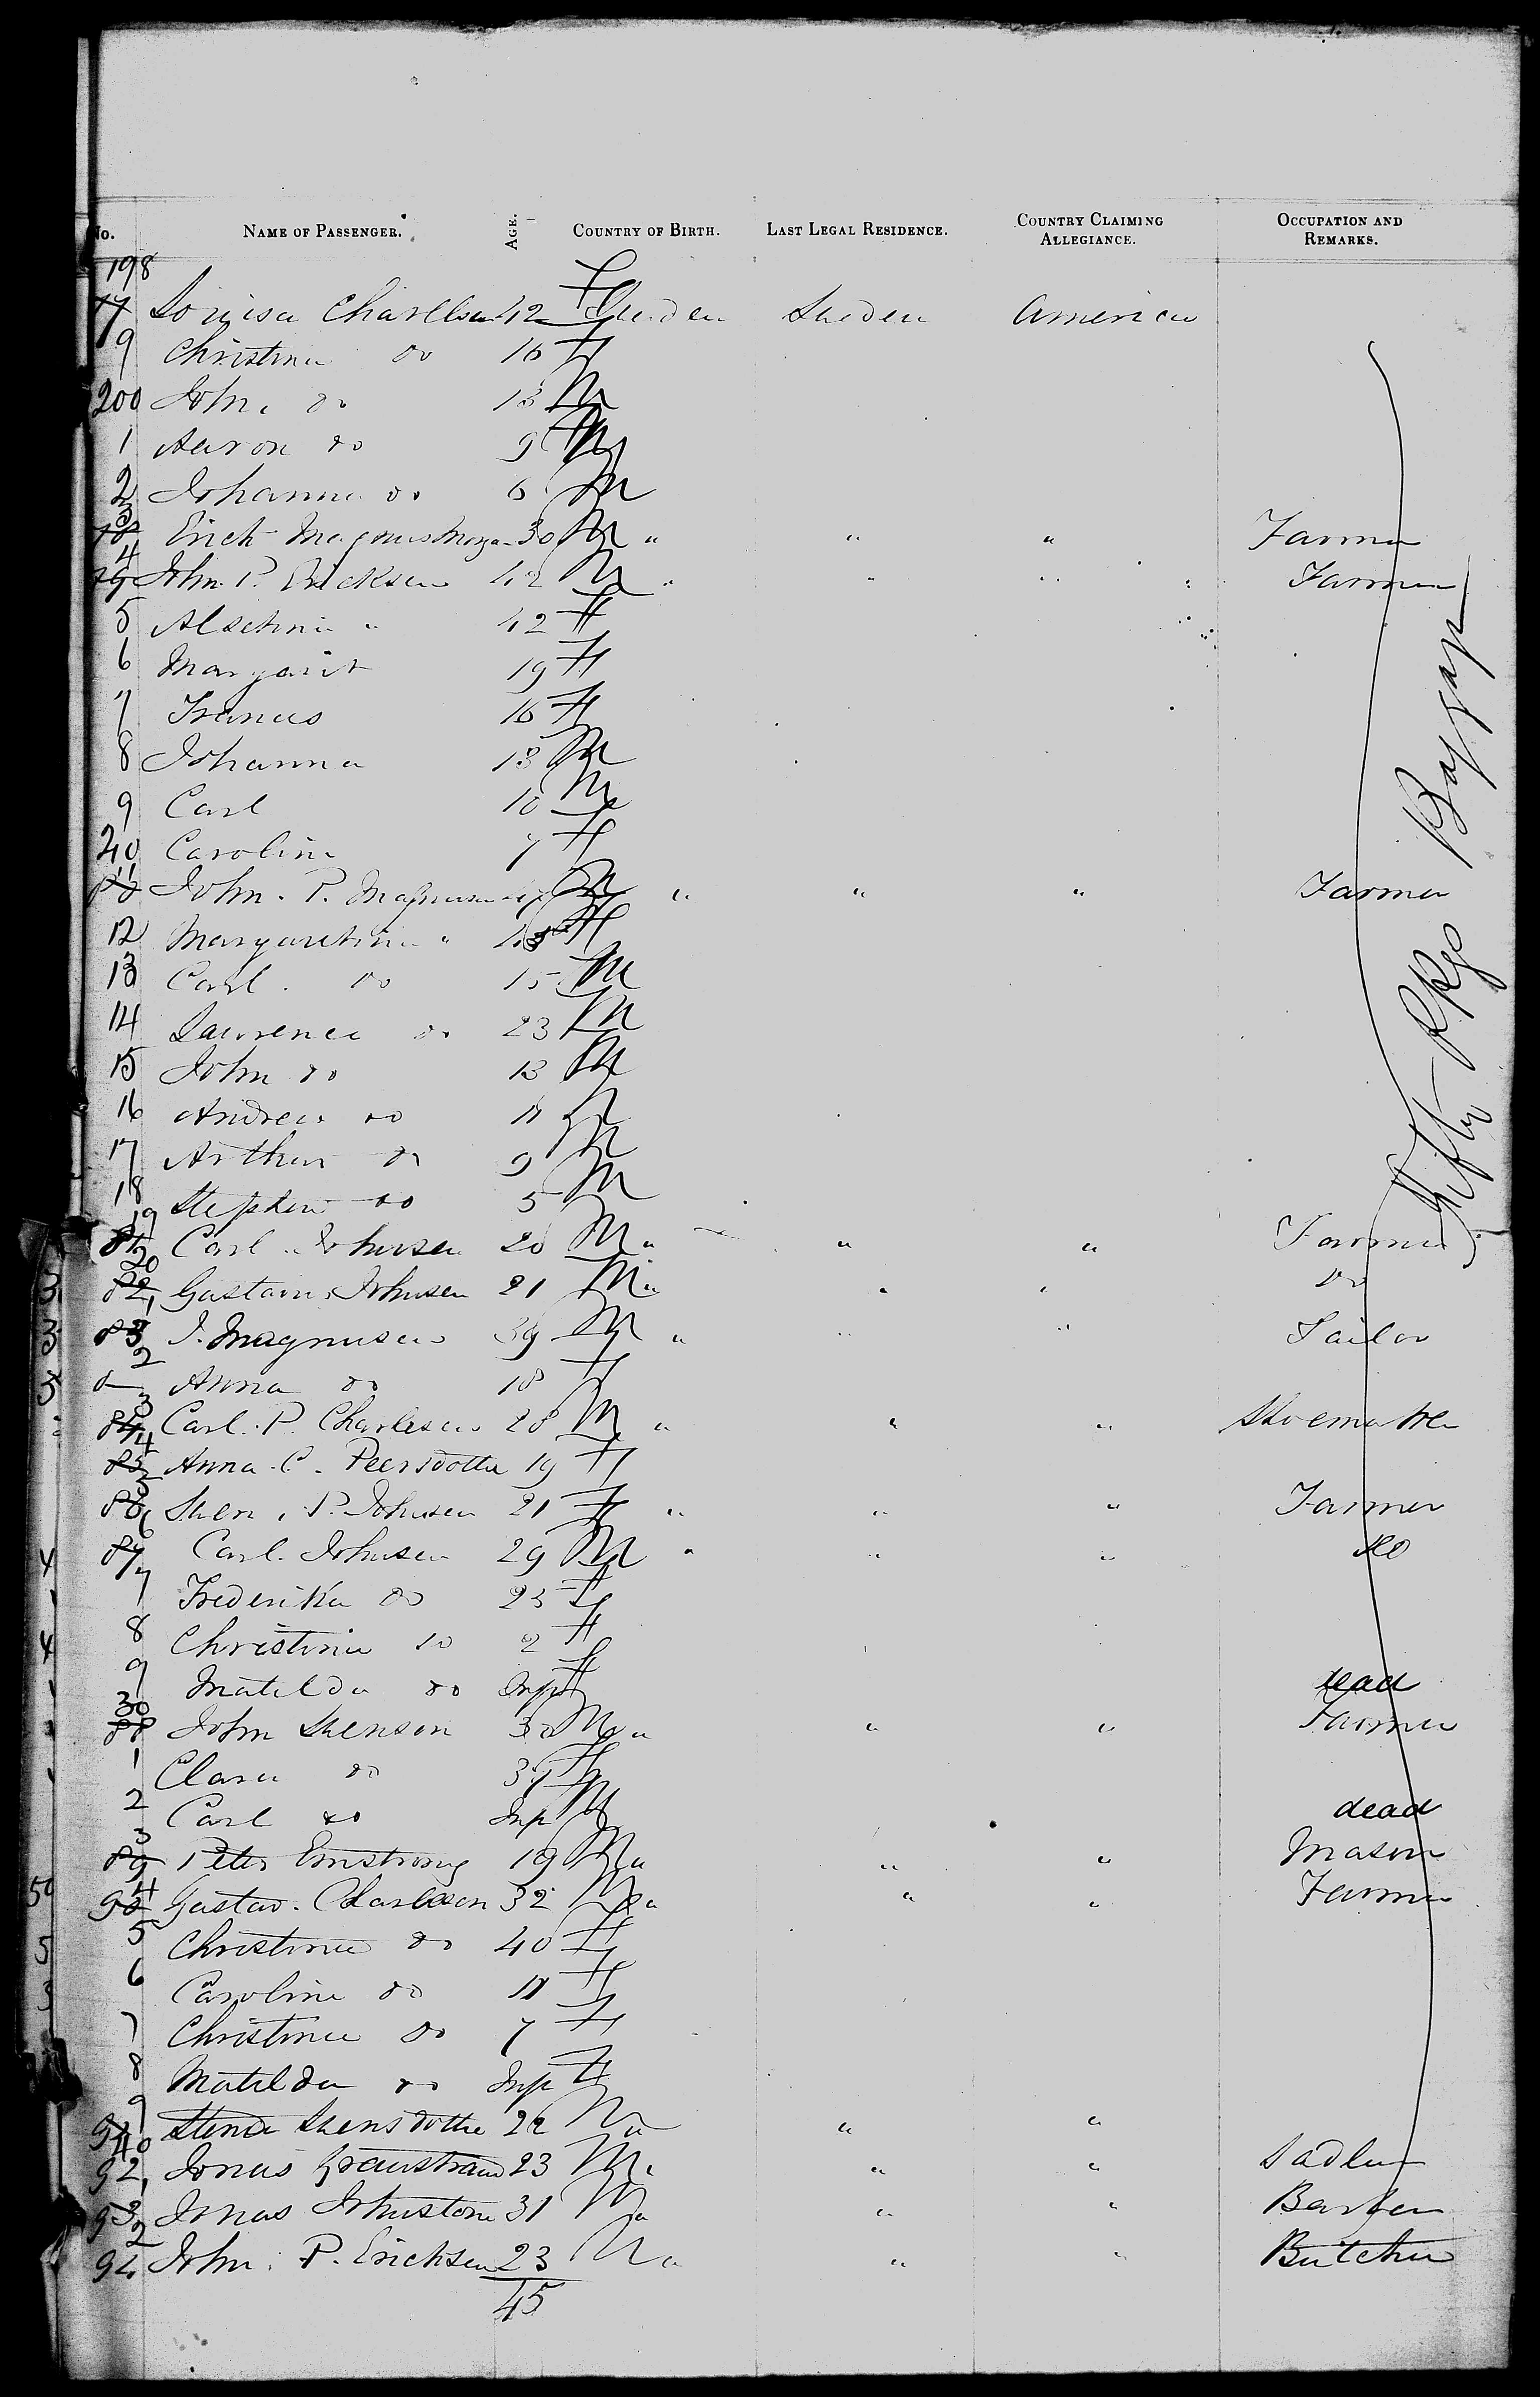 No. NAME OF PASSENGER. AGE. COUNTRY OF BIRTH. LAST LEGAL RESIDENCE. COUNTRY CLAIMING ALLEGIANCE. OCCUPATION AND REMARKS.
198
77 Louisa Charllsen 42 F Sweden Sweden America
9 Christina do 16 F
200 John do 13 M
1 Aaron do 9 M
2 Johanna do 6 M
3 78 Erick Magnus 30 M " " " Farmer
4 79 John P. Ericksen 42 M " " " Farmer
5 " 42 F
6 Margarit 19 F
7 Frances 16 F
8 Johanna 13 M
9 Carl 10 M
Caroline 7 F
11 80 John. P. Magnusen M " " " Farmer
12 " F
13 Carl. do 15 M
14 Lawrence do 23 M
15 John do 13 M
16 Andrew do 11 M
17 Arthur do 9 M
18 Stephen do 5 M
19 81 Carl Johnsen 20 M " " " Farmer
20 82 Gustavus Johnsen 21 M " " " do
1 83 J. Magnusen 39 M " " " Tailor
2 Anna do 18 F
3 84 Carl. P. Charlesen 28 M " " " Shoemaker
4 85 Anna C. Peersdotter 19 F
5 86 Sven. P. Johnsen 21 F " " " Farmer
6 87 Carl. Johnsen 29 M " " " do
7 Frederika do 23 F
8 Christina do 2 F
9 Matilda do Inft F dead
30 88 John Svenson 30 M " " " Farmer
1 Clara do F
2 Carl do Inf M dead
3 89 Peter 19 M " " " Mason
4 90 Gustav. Charlsson 32 M " " " Farmer
5 Christina do 40 F
6 Caroline do 11 F
7 Christina do 7 F
8 Matilda do Inf F
9 91 Svensdotter 22 " " "
40 92 Jonas 23 M " " " Sadler
1 93 Jonas Johnstone 31 M " " " Barber
2 94 John. P. Ericksen 23 M " " " Butcher
45
Fifty Pkgs Baggage